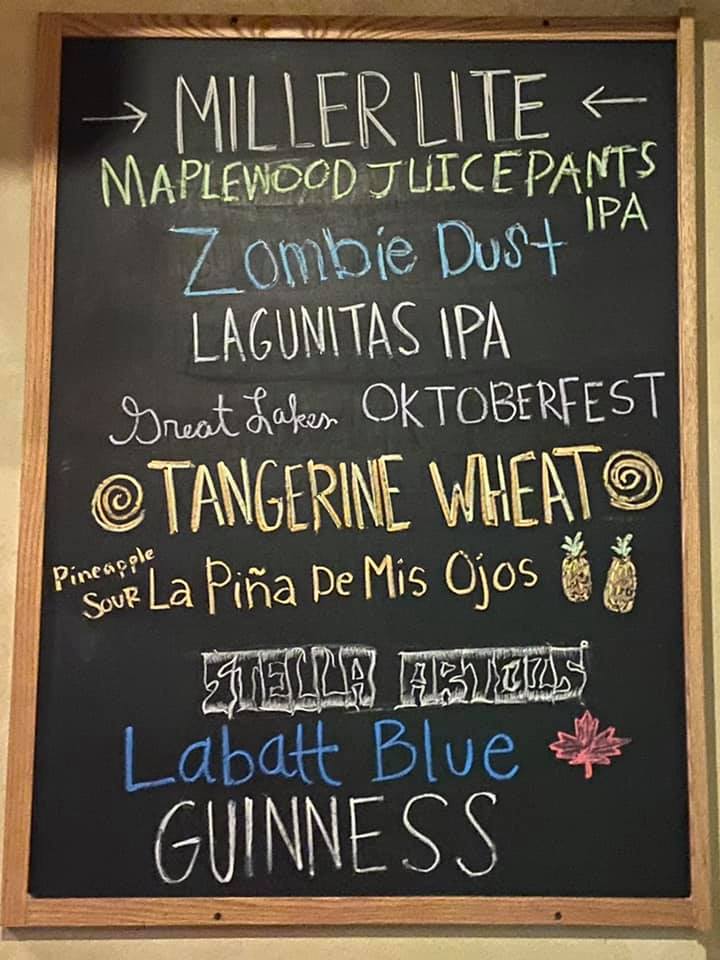 → MILLER LITE ←
MAPLEWOOD JUICEPANTS
IPA
Zombie Dust
LAGUNITAS IPA
Great Lakes OKTOBERFEST
TANGERINE WHEAT
Pineapple
SOUR La Piña De Mis Ojos
STELLA ARTOIS
Labatt Blue
GUINNESS